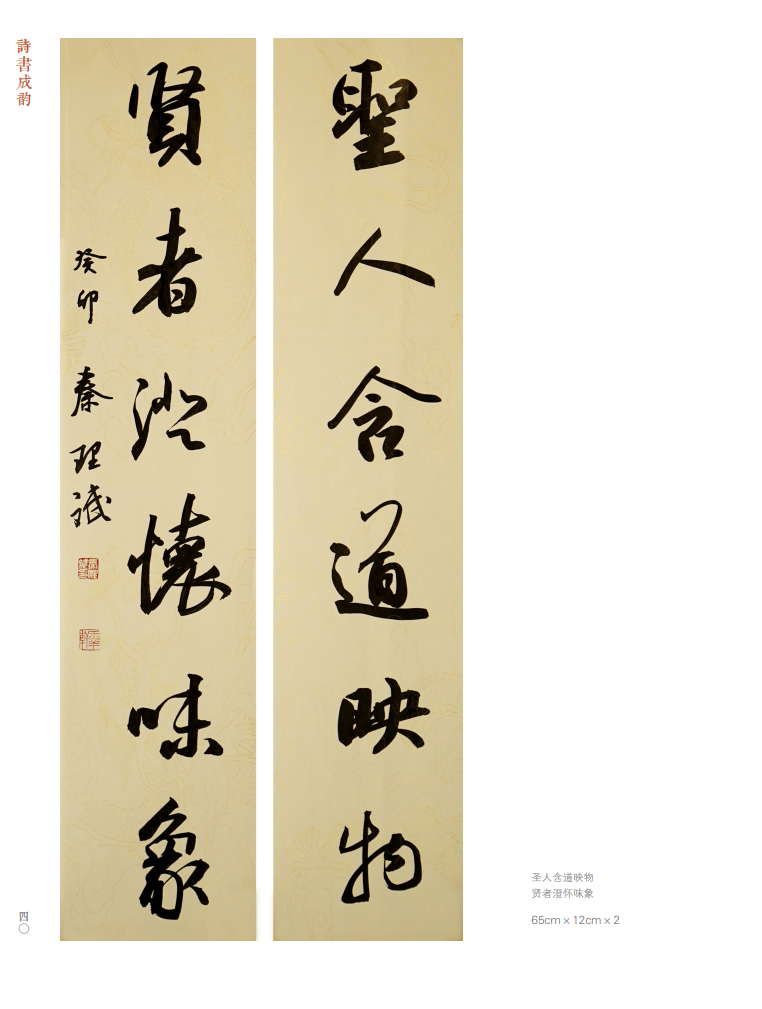 詩書成韵
聖人含道映物
賢者澄懷味象
癸卯 秦理斌
圣人含道映物
贤者澄怀味象
65cm × 12cm × 2
四〇